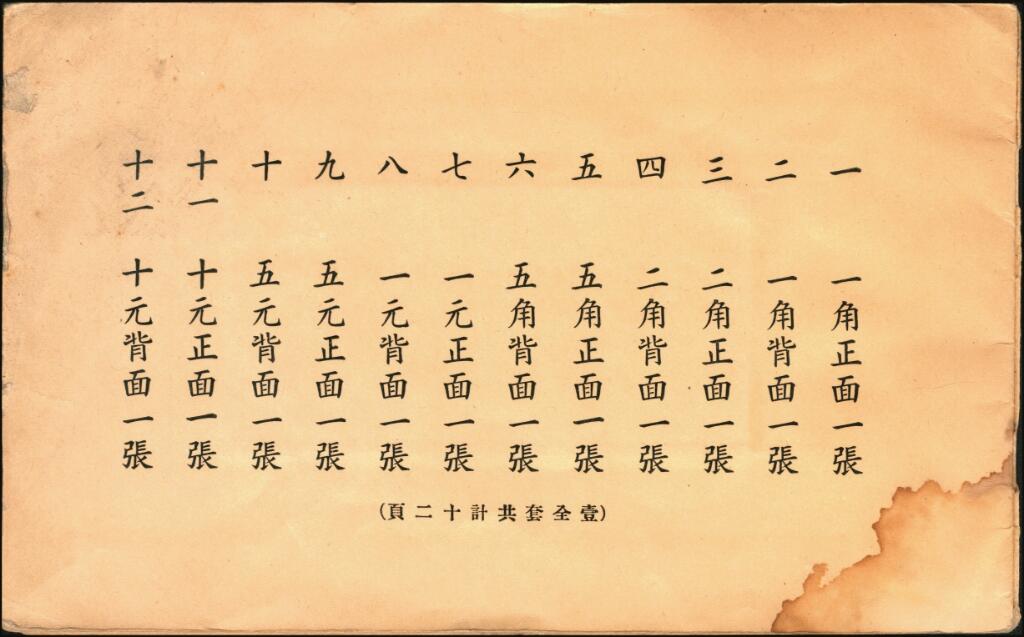 一 一角正面一張
二 一角背面一張
三 二角正面一張
四 二角背面一張
五 五角正面一張
六 五角背面一張
七 一元正面一張
八 一元背面一張
九 五元正面一張
十 五元背面一張
十一 十元正面一張
十二 十元背面一張
(壹全套共計十二頁)